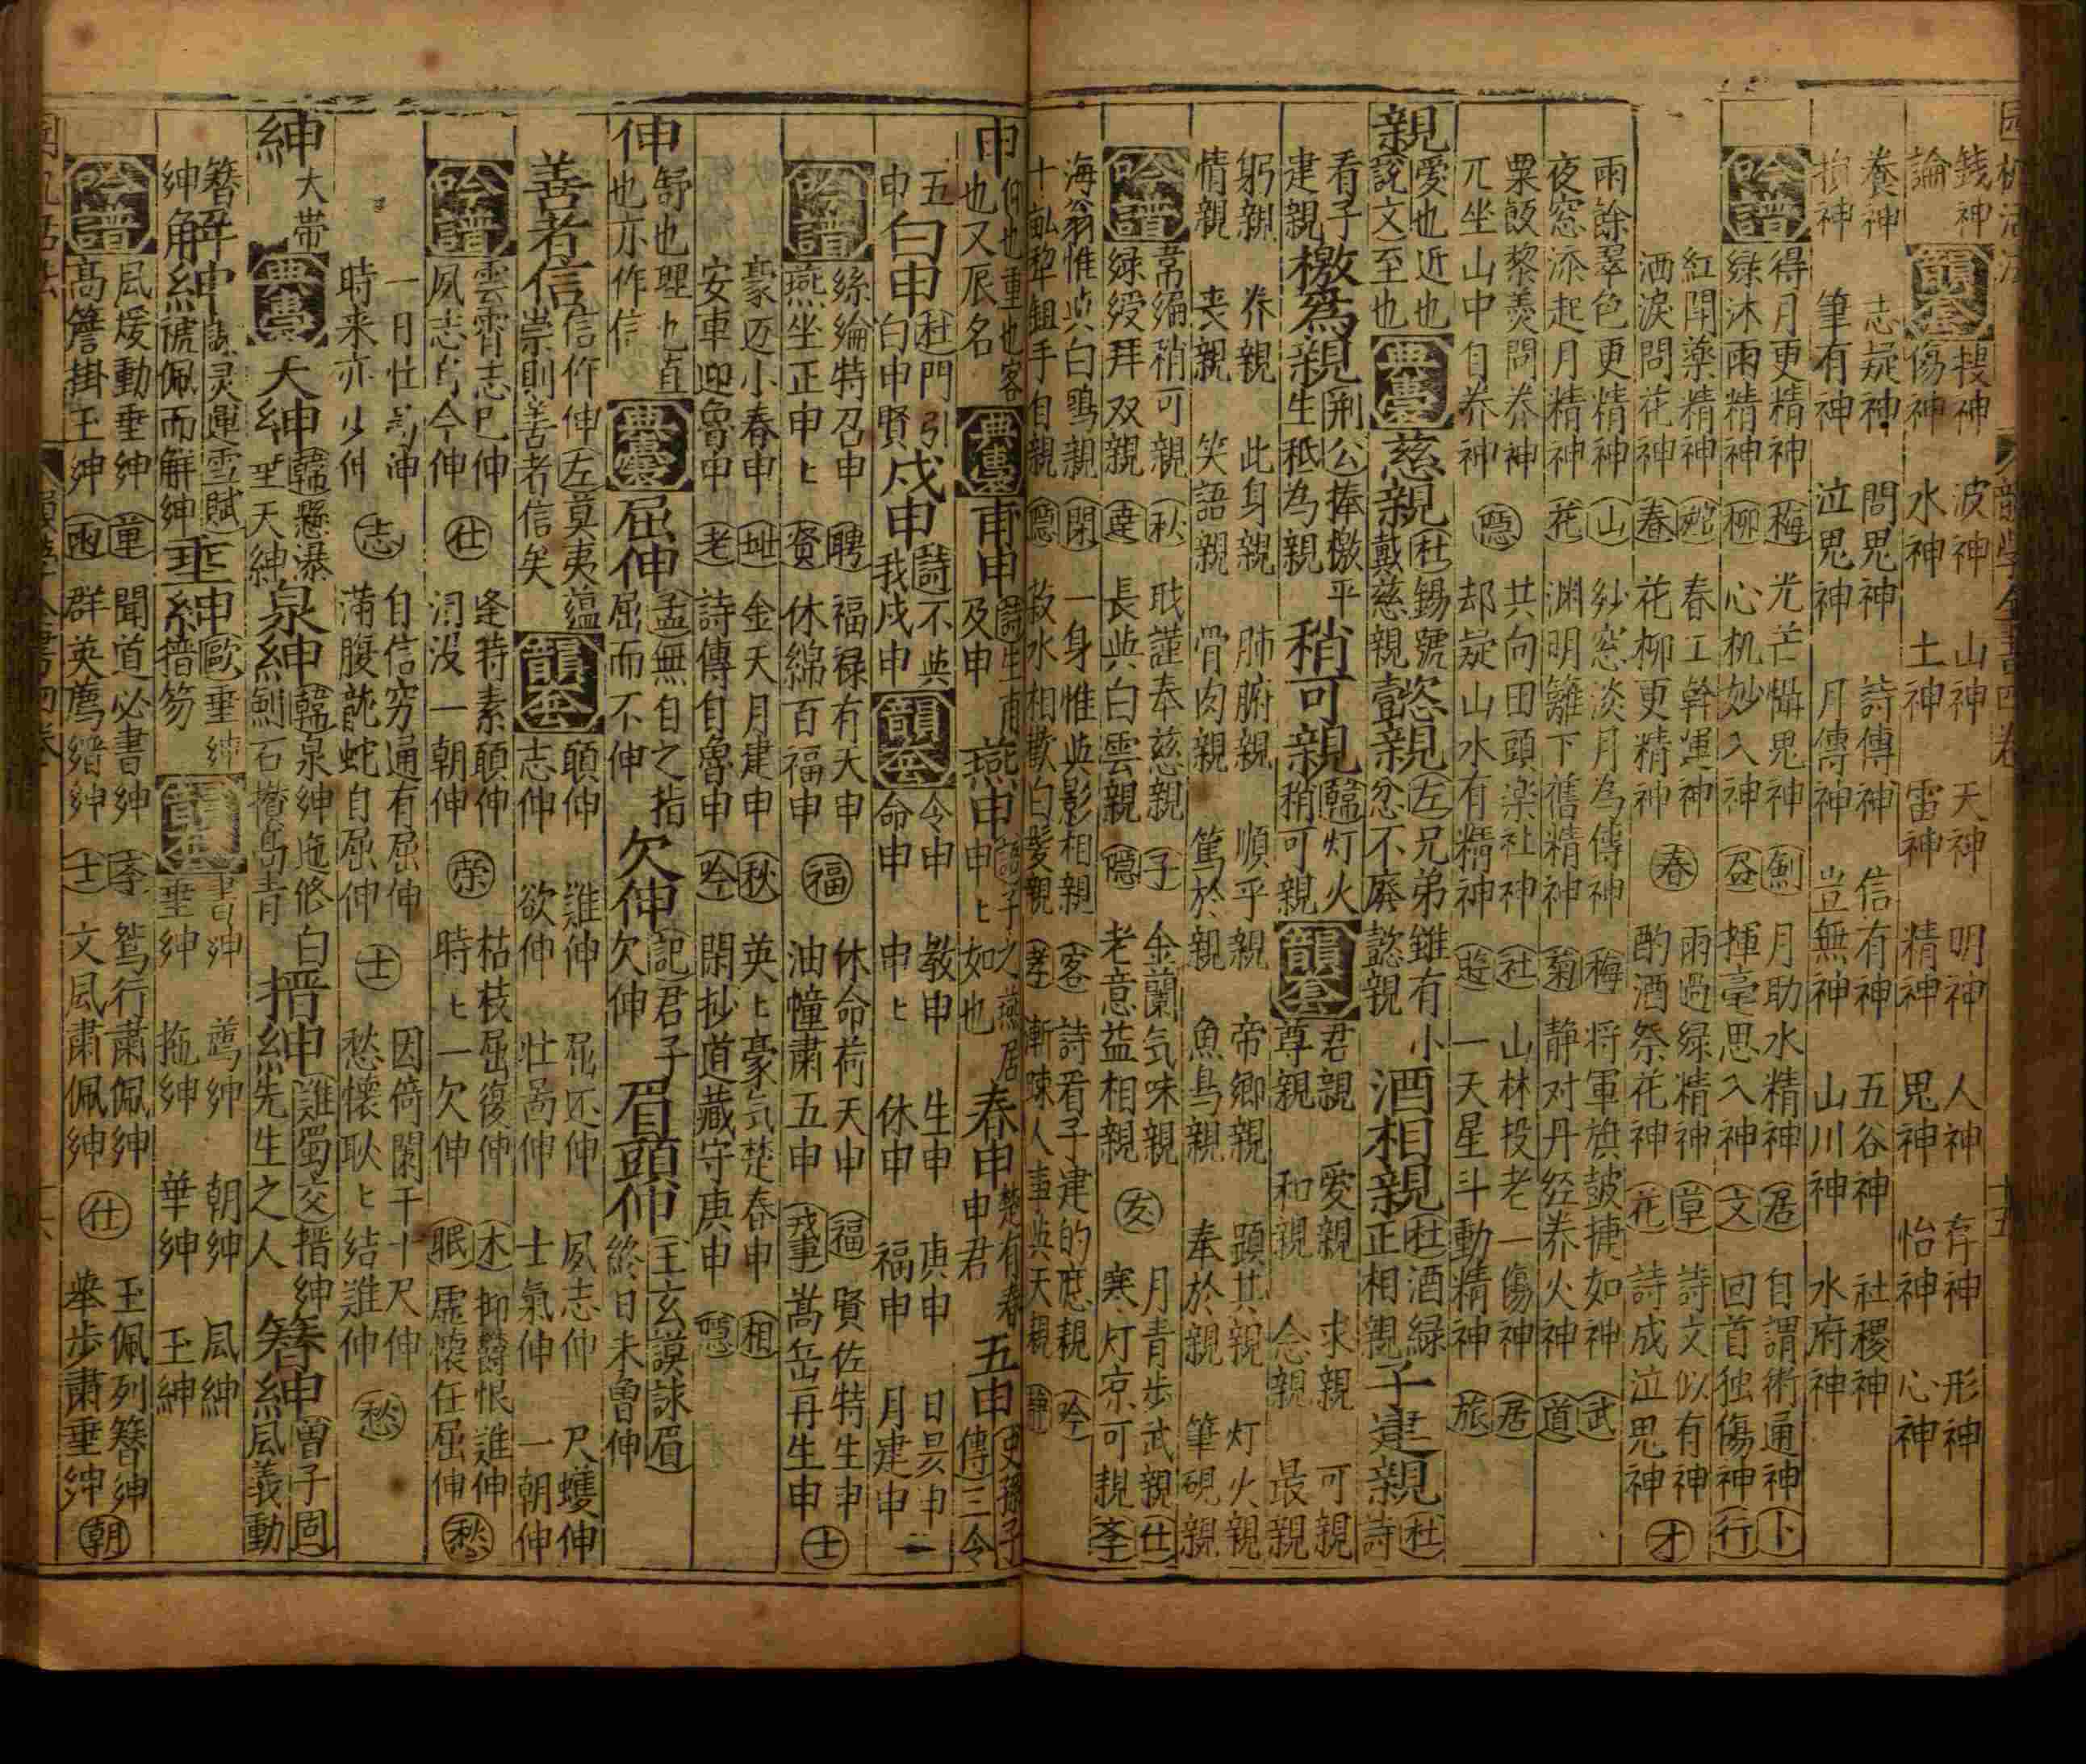 錢神
論
韻套
搜神 波神 山神 天神 明神 人神 存神 形神
傷神 水神 土神 雷神 精神 鬼神 怡神 心神
養神 志凝神 問鬼神 詩傳神 信有神 五谷神 社稷神
筆有神 泣鬼神 月傳神 豈無神 山川神 水府神
吟譜
得月更精神 梅 光芒懾鬼神 劍 月助水精神 居 自謂術通神 卜
緑沐雨精神 柳 心机妙入神 揮毫思入神 文 回首独傷神 行
紅開藥精神 春工幹運神 雨過緑精神 草 詩文似有神
洒淚問花神 春 花柳更精神 春 酌酒祭花神 花 詩成泣鬼神 才
雨餘翠色更精神 山 紗窓淡月為傳神 梅 将軍旗皷捷如神 武
夜窓添起月精神 花 渊明籬下舊精神 菊 静对丹経养火神 道
粟飯黎羮問养神 隠 共向田頭楽社神 社 山林投老一傷神 居
兀坐山中自养神 却疑山水有精神 遊 一天星斗動精神 旅
親 愛也近也
說文至也
典囊
慈親 杜錫號
戴慈親
懿親 左兄弟雖有小
忿不廢懿親
酒相親 杜酒緑
正相親
子建親 杜詩
看子
建親
檄為親 荆公捧檄平
生秪為親
稍可親 韓灯火
稍可親
韻套
君親 愛親 求親 可親
尊親 和親 念親 最親
躬親 养親 此身親 肺腑親 順乎親 帝卿親 顕其親 灯火親
情親 丧親 笑語親 骨肉親 篤於親 魚鳥親 奉於親 筆硯親
吟譜
韋編稍可親 秋 戢謹奉慈親 子 金蘭気味親 友 月青步武親 仕
緑綬拜双親 長與白雲親 隠 老意益相親 寒灯京可親
海翁惟與白鷗親 閑 一身惟與影相親 客 詩看子建的應親 吟
十畝犁鉏手自親 隠 菽水相歡白髮親 孝 漸踈人事與天親 静
申 伸也重也容
也又辰名
典囊
甫申 詩生甫
及申
燕申 語子之燕居
申申ヒ如也
春申 楚有春
申君
五申 史孫子
傳三令
五
申
白申 杜門引
白申賢
戌申 詩不與
我戌申
韻套
令申 教申 生申 庚申 日昃申
命申 申ヒ 休申 福申 月建申
吟譜
絲綸特召申 聘 福禄有天申 福 休命荷天申 福 賢佐特生申 士
燕坐正申ヒ 休綿百福申 油幢肅五申 嵩岳再生申
豪迈小春申 金天月建申 秋 英ヒ豪気楚春申 相
安車迎魯申 老 詩傳自魯申 吟 閑抄道藏守庚申
伸 舒也理也直
也亦作信
典囊
屈伸 孟無自之指
屈而不伸
欠伸 記君子
欠伸
眉頭伸 王玄謨誅眉
終日未曾伸
善者信 信作伸左莫夷蕴
崇則善者信矣
韻套
頤伸 難伸 屈还伸 夙志伸 尺蠖伸
志伸 欲伸 壮啚伸 士氣伸 一朝伸
吟譜
雲霄志已伸 仕 逢特素頤伸 荣 枯枝屈復伸 木 抑鬱恨難伸 愁
夙志啚今伸 汨没一朝伸 時ヒ一欠伸 眠 虚懐任屈伸
一日壮啚伸 志 自信穷通有屈伸 士 因倚闌干十尺伸 愁
時来亦少伸 滿腹龍蛇自屈伸 愁懷耿ヒ結難伸
紳 大帯
典囊
天紳 韓懸瀑
垂天紳
泉紳 韓泉紳迤修白
劍石攢高青
搢紳 難蜀文搢紳
先生之人
簪紳 曾子固
風義動
簪
紳
解紳 謝灵運雪賦
褫佩而解紳
垂紳 歐垂紳
搢笏
韻套
書紳 薦紳 朝紳 風紳
垂紳 拖紳 華紳 玉紳
吟譜
風煖動垂紳 聞道必書紳 鴛行肅佩紳 仕 玉佩列簪紳 朝
高簷掛玉紳 雨 群英薦縉紳 士 文風肅佩紳 举步肅垂紳